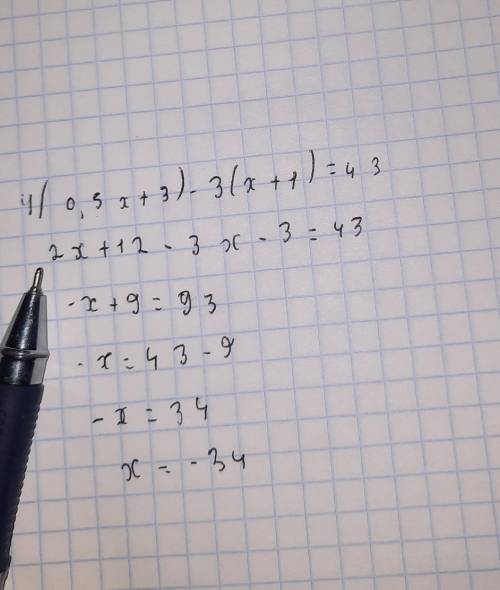 4( 0,5 x + 3) - 3(x + 1) = 43
2x + 12 - 3x - 3 = 43
-x + 9 = 93
-x = 43 - 9
-x = 34
x = -34